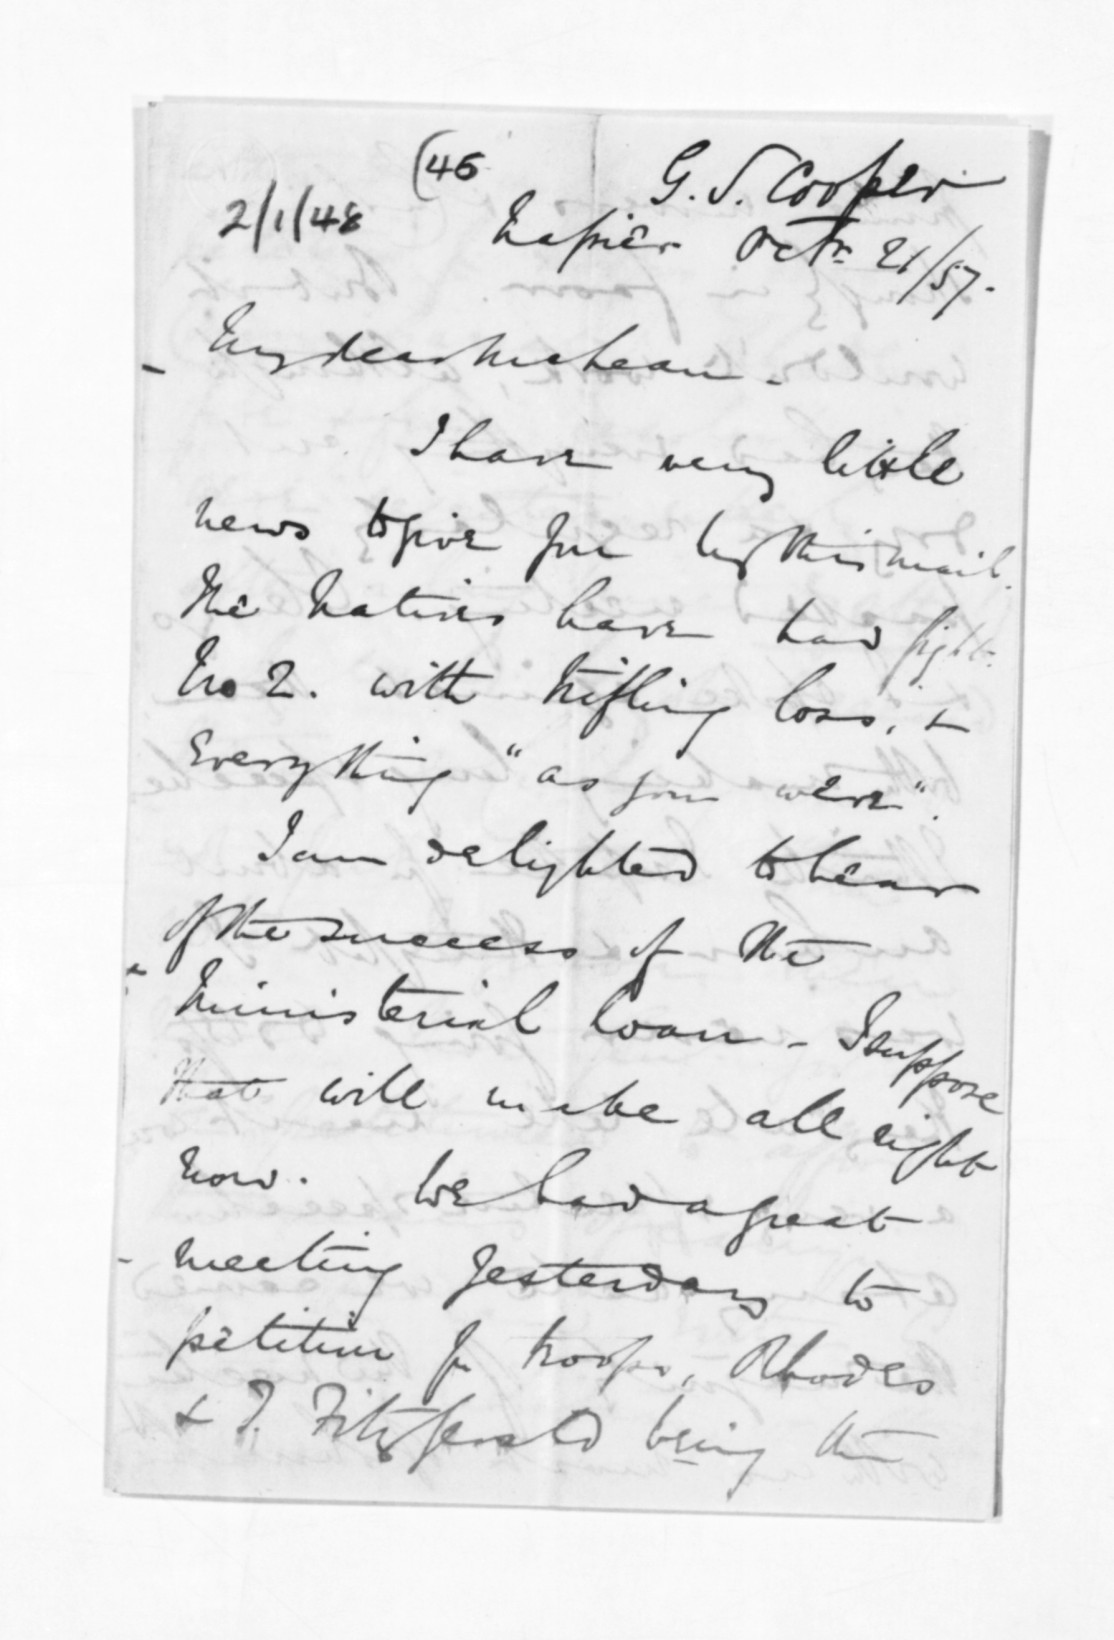 (45
G. S. Cooper
2/1/48
Napier Octr. 21/57.
My dear McLean.
I have very little
news to give you by this mail.
The Natives have had fight
No 2. with trifling loss, &
everything "as you were".
I am delighted to hear
of the success of the
Ministerial loan - I suppose
that will make all right
now. We had a great
meeting yesterday to
petition for troops, Rhodes
& T. Fitzgerald being the